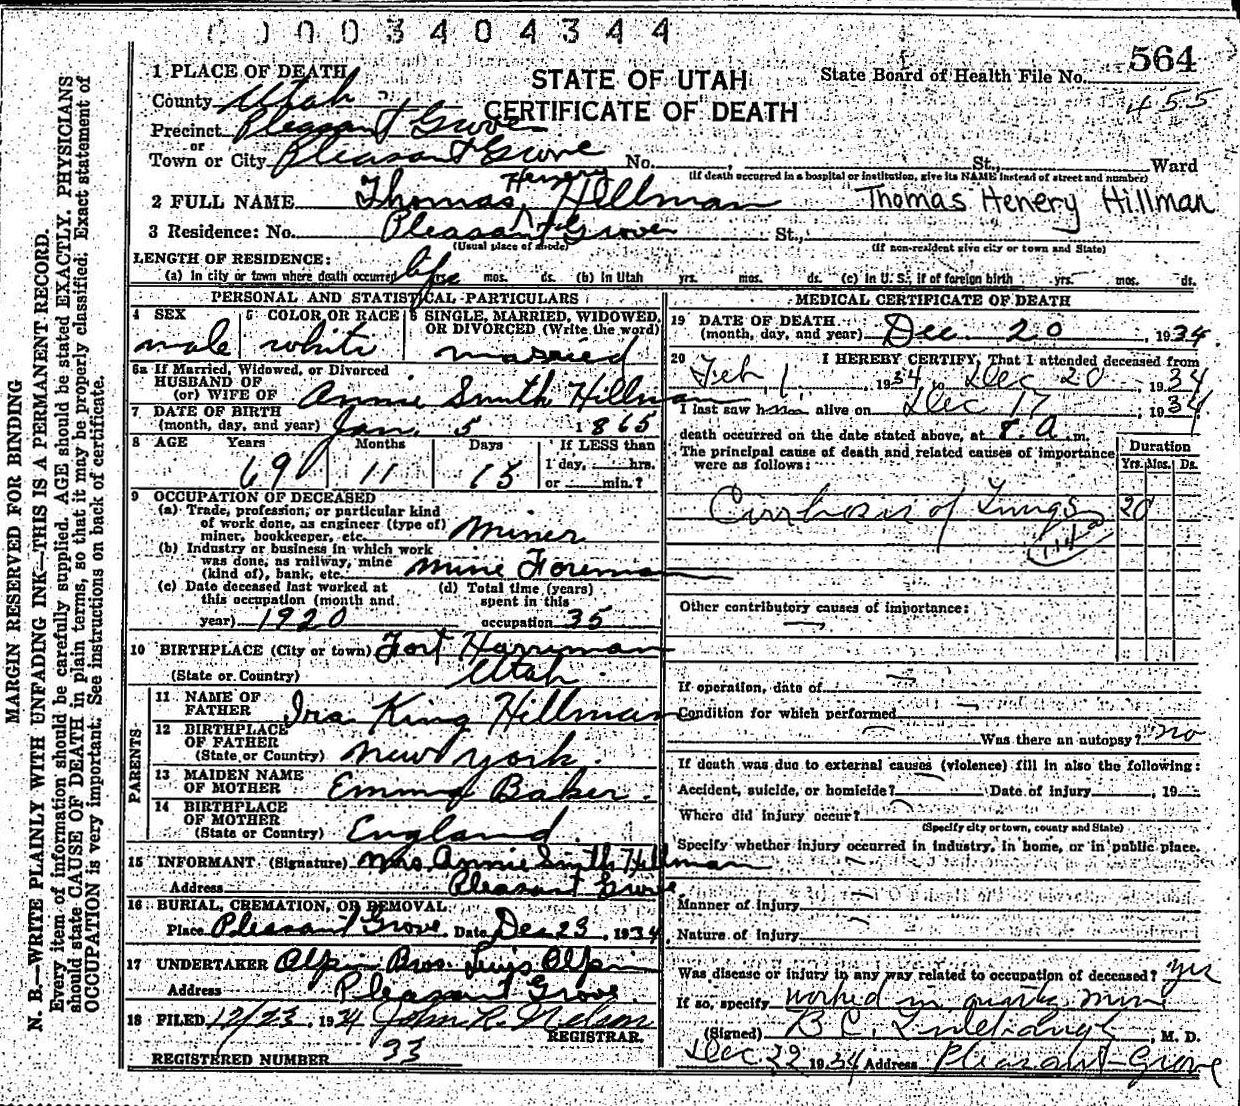 0 0 0 3 4 0 4 3 4 4
564
1 PLACE OF DEATH
STATE OF UTAH
State Board of Health File No.
County Utah
CERTIFICATE OF DEATH
455
Precinct Pleasant Grove
or
Town or City Pleasant Grove No. , St., Ward
(If death occurred in a hospital or institution, give its NAME instead of street and number)
2 FULL NAME Thomas Henery Hillman Thomas Henery Hillman
3 Residence: No. Pleasant Grove St.,
(Usual place of abode) (If non-resident give city or town and State)
LENGTH OF RESIDENCE:
(a) In city or town where death occurred life yrs. mos. ds. (b) In Utah yrs. mos. ds. (c) In U. S., if of foreign birth yrs. mos. ds.
PERSONAL AND STATISTICAL PARTICULARS
4 SEX 5 COLOR OR RACE 6 SINGLE, MARRIED, WIDOWED, OR DIVORCED (Write the word)
male white married
6a If Married, Widowed, or Divorced
HUSBAND OF
(or) WIFE OF Annie Smith Hillman
7 DATE OF BIRTH
(month, day, and year) Jan. 5 1865
8 AGE Years Months Days If LESS than
69 11 15 1 day, hrs.
or min.?
9 OCCUPATION OF DECEASED
(a) Trade, profession, or particular kind
of work done, as engineer (type of)
miner, bookkeeper, etc. Miner
(b) Industry or business in which work
was done, as railway, mine
(kind of), bank, etc. Mine Foreman
(c) Date deceased last worked at (d) Total time (years)
this occupation (month and spent in this
year) 1920 occupation 35
10 BIRTHPLACE (City or town) Fort Harriman
(State or Country) Utah
PARENTS
11 NAME OF
FATHER Ira King Hillman
12 BIRTHPLACE
OF FATHER
(State or Country) New York
13 MAIDEN NAME
OF MOTHER Emma Baker.
14 BIRTHPLACE
OF MOTHER
(State or Country) England
15 INFORMANT (Signature) Mrs. Annie Smith Hillman
Address Pleasant Grove
16 BURIAL, CREMATION, OR REMOVAL
Place Pleasant Grove Date Dec 23, 1934
17 UNDERTAKER Olpin Bros.
Address Pleasant Grove.
18 FILED 12/23, 1934 John R. Nelson
REGISTRAR.
REGISTERED NUMBER 33
MEDICAL CERTIFICATE OF DEATH
19 DATE OF DEATH
(month, day, and year) Dec 20, 1934.
20 I HEREBY CERTIFY, That I attended deceased from
Feb 1, 1934, to Dec 20 1934
I last saw h alive on Dec 17, 1934
death occurred on the date stated above, at 8. a m.
The principal cause of death and related causes of importance
were as follows:
Duration
Yrs. Mos. Ds.
Cirrhosis of Lungs 20
114
Other contributory causes of importance:
If operation, date of
Condition for which performed
Was there an autopsy? no
If death was due to external causes (violence) fill in also the following:
Accident, suicide, or homicide? Date of injury , 19
Where did injury occur?
(Specify city or town, county and State)
Specify whether injury occurred in industry, in home, or in public place.
Manner of Injury
Nature of Injury
Was disease or injury in any way related to occupation of deceased? yes
If so, specify worked in quartz mine
(Signed) B C. , M. D.
Dec 22 1934 Address Pleasant Grove
MARGIN RESERVED FOR BINDING
N. B.—WRITE PLAINLY WITH UNFADING INK—THIS IS A PERMANENT RECORD.
Every item of information should be carefully supplied. AGE should be stated EXACTLY. PHYSICIANS
should state CAUSE OF DEATH in plain terms, so that it may be properly classified. Exact statement of
OCCUPATION is very important. See instructions on back of certificate.